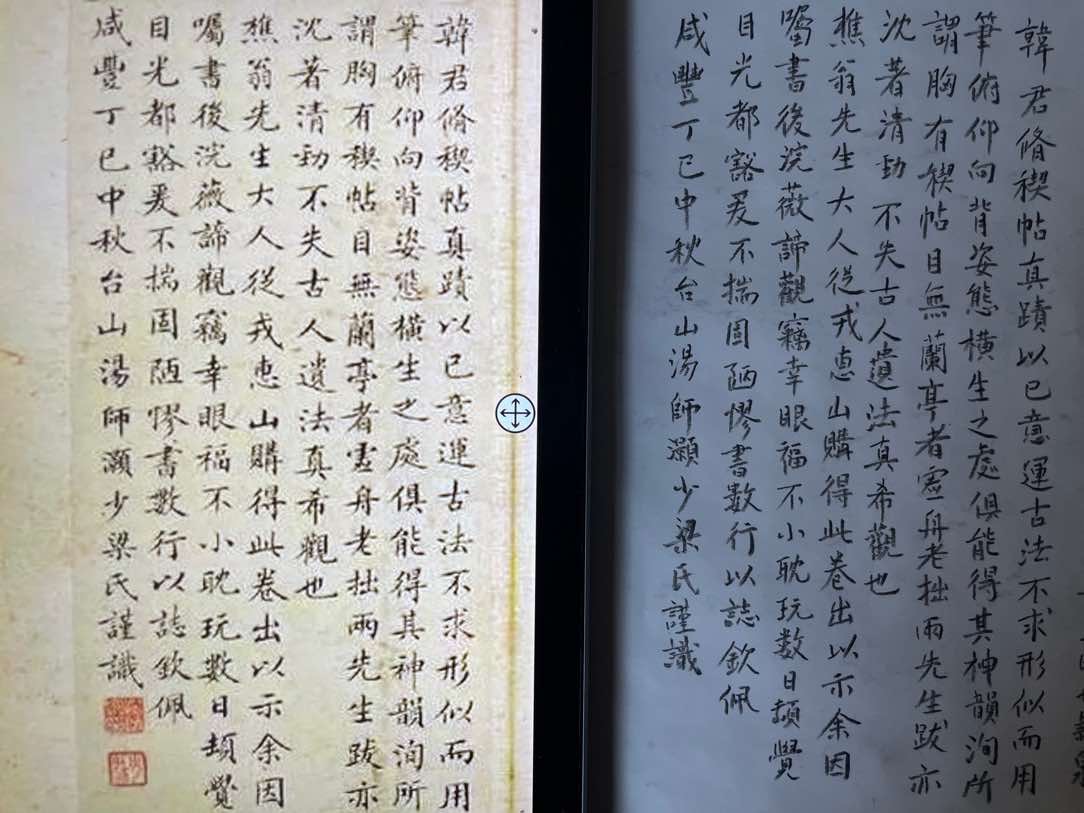 韓君脩稧帖真蹟以己意運古法不求形似而用
筆俯仰向背姿態橫生之處俱能得其神韻洵所
謂胸有稧帖目無蘭亭者虛舟老拙兩先生跋亦
沈著清勁不失古人遺法真希觀也
樵翁先生大人從戎惠山購得此卷出以示余因
囑書後浣薇諦觀竊幸眼福不小耽玩數日頓覺
目光都豁爰不揣固陋憀書數行以誌欽佩
咸豐丁巳中秋台山湯師灝少梁氏謹識
韓君脩稧帖真蹟以己意運古法不求形似而用
筆俯仰向背姿態橫生之處俱能得其神韻洵所
謂胸有稧帖目無蘭亭者虛舟老拙兩先生跋亦
沈著清勁不失古人遺法真希觀也
樵翁先生大人從戎惠山購得此卷出以示余因
囑書後浣薇諦觀竊幸眼福不小耽玩數日頓覺
目光都豁爰不揣固陋憀書數行以誌欽佩
咸豐丁巳中秋台山湯師灝少梁氏謹識